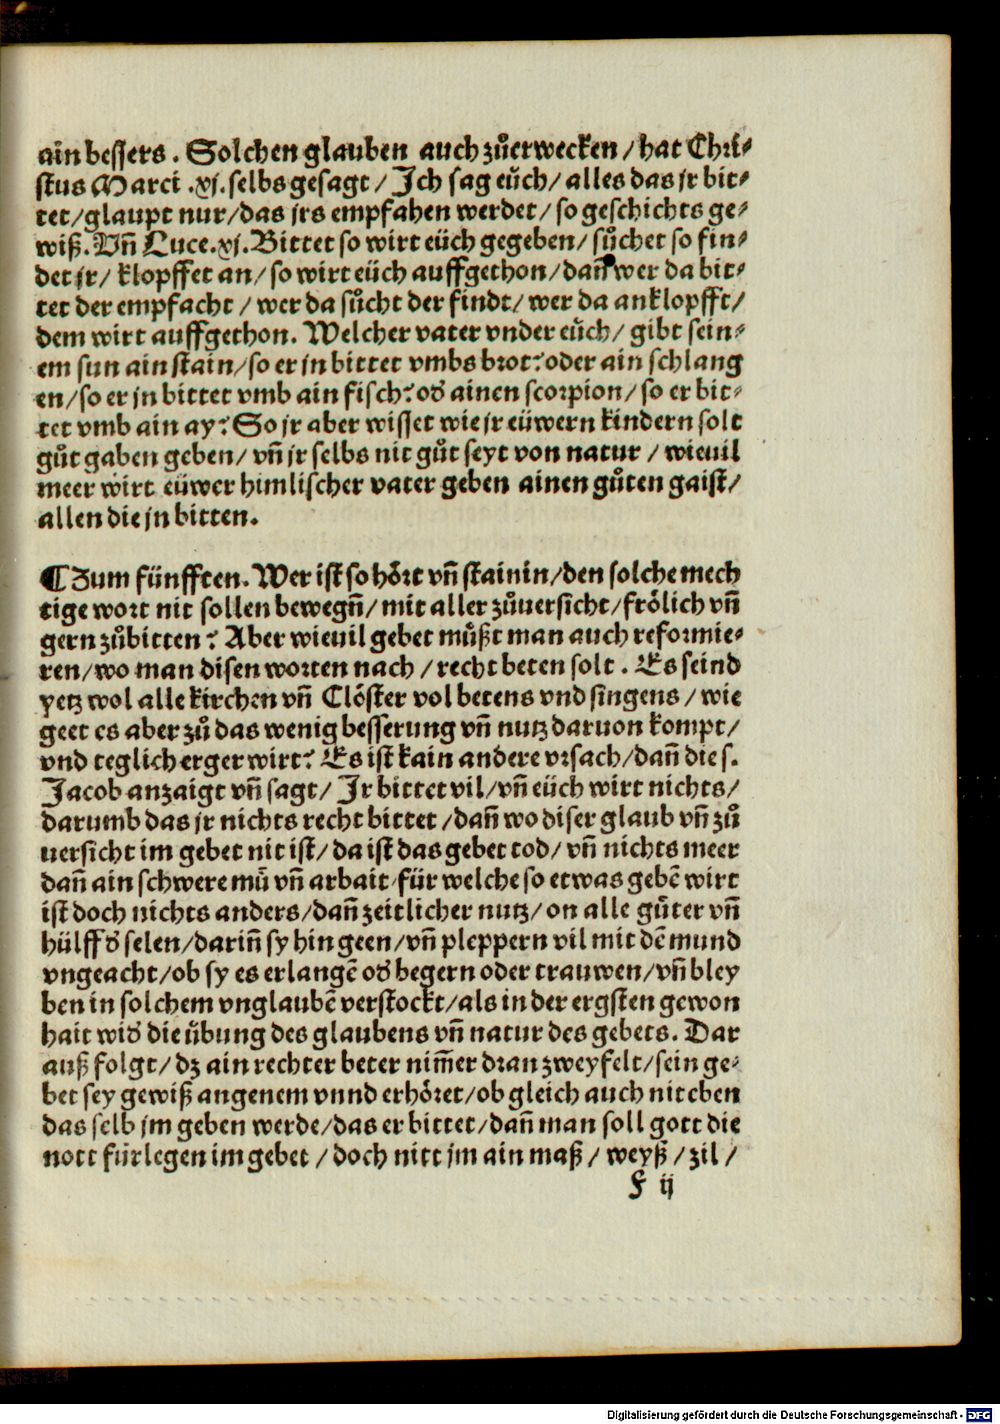 ain bessers. Solchen glauben auch zůerwecken / hat Chri⸗
stus Marci .xj. selbs gesagt / Ich sag eüch / alles das jr bit⸗
tet / glaupt nur / das jrs empfahen werdet / so geschichts ge⸗
wiß. Vñ Luce. xj. Bittet so wirt eüch gegeben / sůchet so fin⸗
det jr / klopffet an / so wirt eüch auffgethon / dañ wer da bit⸗
tet der empfacht / wer da sůcht der findt / wer da anklopfft /
dem wirt auffgethon. Welcher vater vnder eüch / gibt sein⸗
em sun ain stain / so er jn bittet vmbs brot? oder ain schlang
en / so er jn bittet vmb ain fisch? oď ainen scorpion / so er bit⸗
tet vmb ain ay? So jr aber wisset wie jr eüwern kindern solt
gůt gaben geben / vñ jr selbs nit gůt seyt von natur / wieuil
meer wirt eüwer himlischer vater geben ainen gůten gaist /
allen die jn bitten.
¶ Zum fünfften. Wer ist so hört vñ stainin / den solche mech
tige wort nit sollen bewegñ / mit aller zůuersicht / frölich vñ
gern zůbitten? Aber wieuil gebet můßt man auch reformie⸗
ren / wo man disen worten nach / recht beten solt. Es seind
yetz wol alle kirchen vñ Clöster vol betens vnd singens / wie
geet es aber zů das wenig besserung vñ nutz daruon kompt /
vnd teglich erger wirt? Es ist kain andere vrsach / dañ die s.
Jacob anzaigt vñ sagt / Ir bittet vil / vñ eüch wirt nichts /
darumb das jr nichts recht bittet / dañ wo diser glaub vñ zů
uersicht im gebet nit ist / da ist das gebet tod / vñ nichts meer
dañ ain schwere mü vñ arbait / für welche so etwas gebē wirt
ist doch nichts anders / dañ zeitlicher nutz / on alle güter vñ
hülff ď selen / dariñ sy hin geen / vñ pleppern vil mit dē mund
vngeacht / ob sy es erlangē oď begern oder trauwen / vñ bley
ben in solchem vnglaubē verstockt / als in der ergsten gewon
hait wiď die übung des glaubens vñ natur des gebets. Dar
auß folgt / dz ain rechter beter nim̃er dran zweyfelt / sein ge⸗
bet sey gewiß angenem vnnd erhöret / ob gleich auch nit eben
das selb jm geben werde / das er bittet / dañ man soll gott die
nott fürlegen im gebet / doch nitt jm ain maß / weyß / zil /
F ij
Digitalisierung gefördert durch die Deutsche Forschungsgemeinschaft - DFG